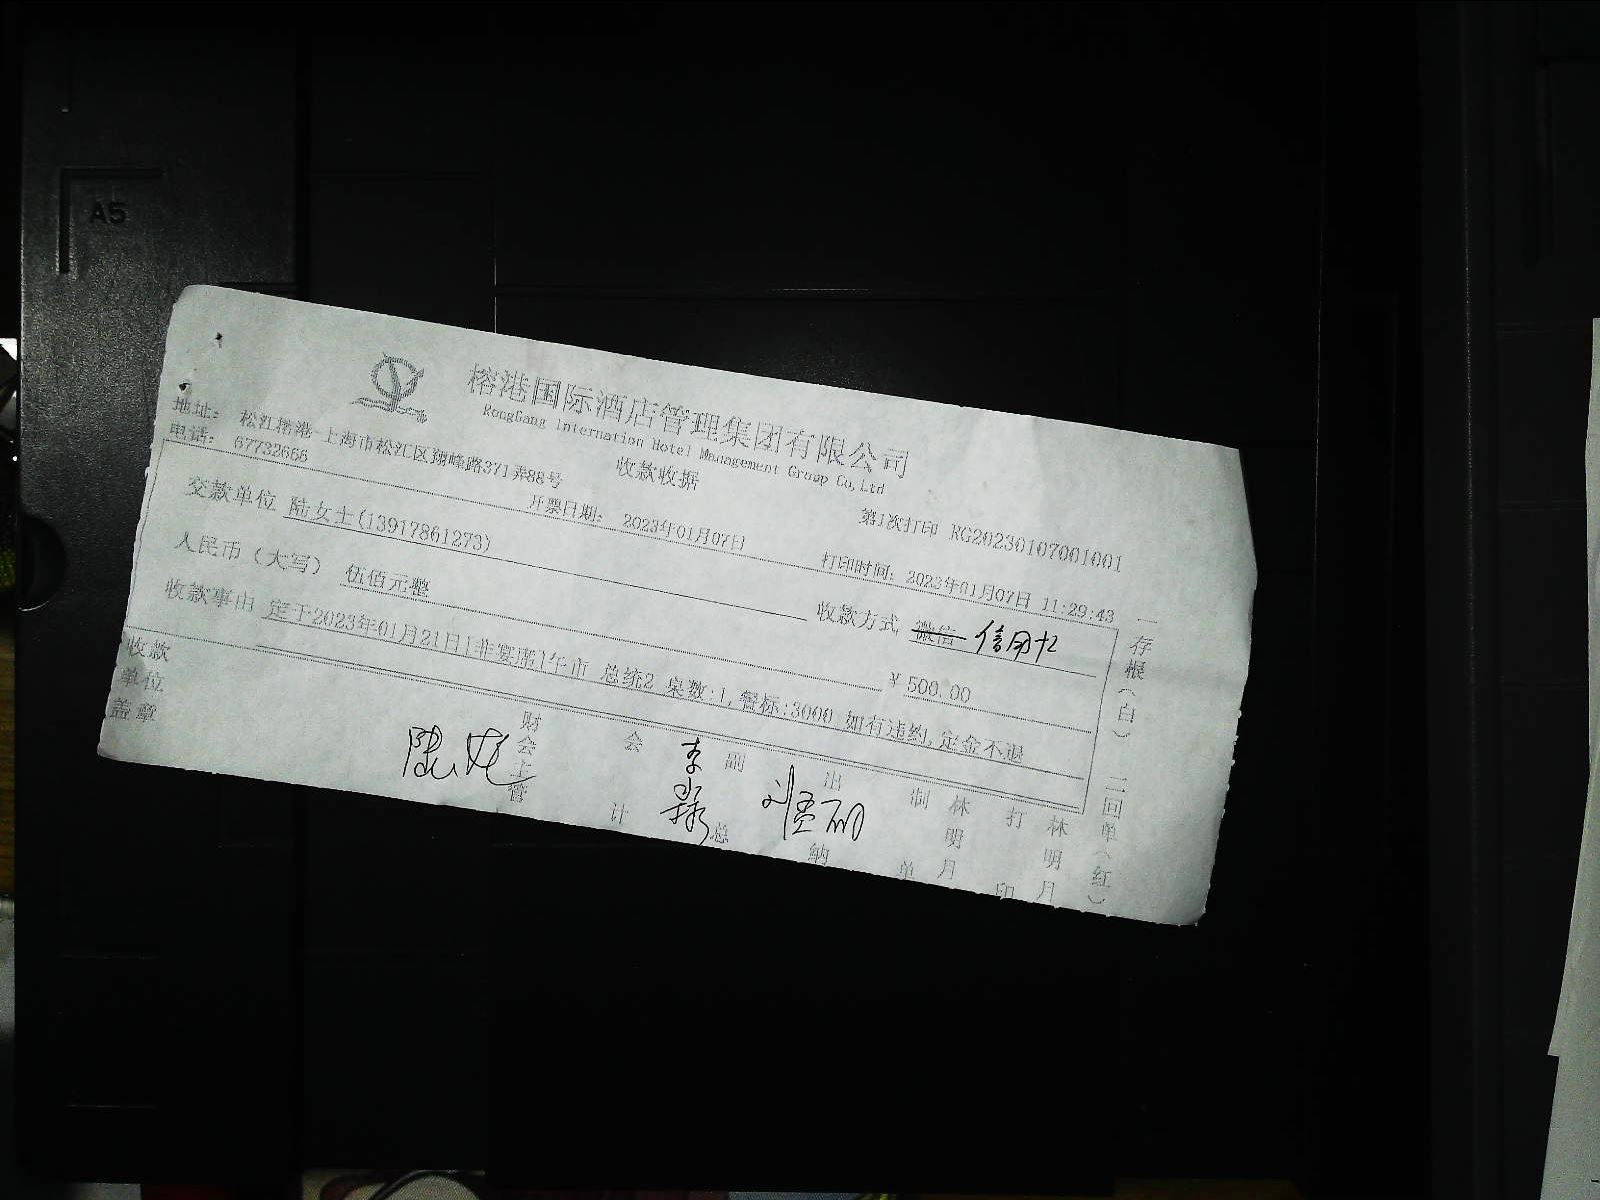 A5
榕港国际酒店管理集团有限公司
RongGang Internation Hotel Management Group Co,Ltd
地址： 松江榕港-上海市松江区翔峰路371弄88号
收款收据
第1次打印 RG20230107001001
电话： 67732666
开票日期： 2023年01月07日
打印时间： 2023年01月07日 11:29:43
交款单位 陆女士(13917861273)
收款方式 微信 信用卡
人民币（大写） 伍佰元整
￥500.00
收款事由 定于2023年01月21日[非宴席]午市 总统2 桌数:1,餐标:3000 如有违约,定金不退
收款单位盖章
财会主管
会计
李淼
副总
出纳
制单 林明月
打印 林明月
一存根（白） 二回单（红）